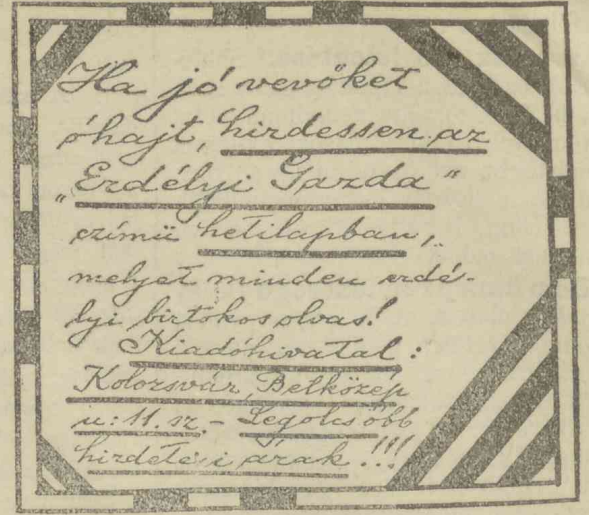 Ha jó vevőket
óhajt, hirdessen az
„Erdélyi Gazda"
czímü hetilapban,
melyet minden erdé-
lyi birtokos olvas!
Kiadóhivatal:
Kolozsvár, Belközép
u: 11. sz. - Legolcsóbb
hirdetési árak!!!